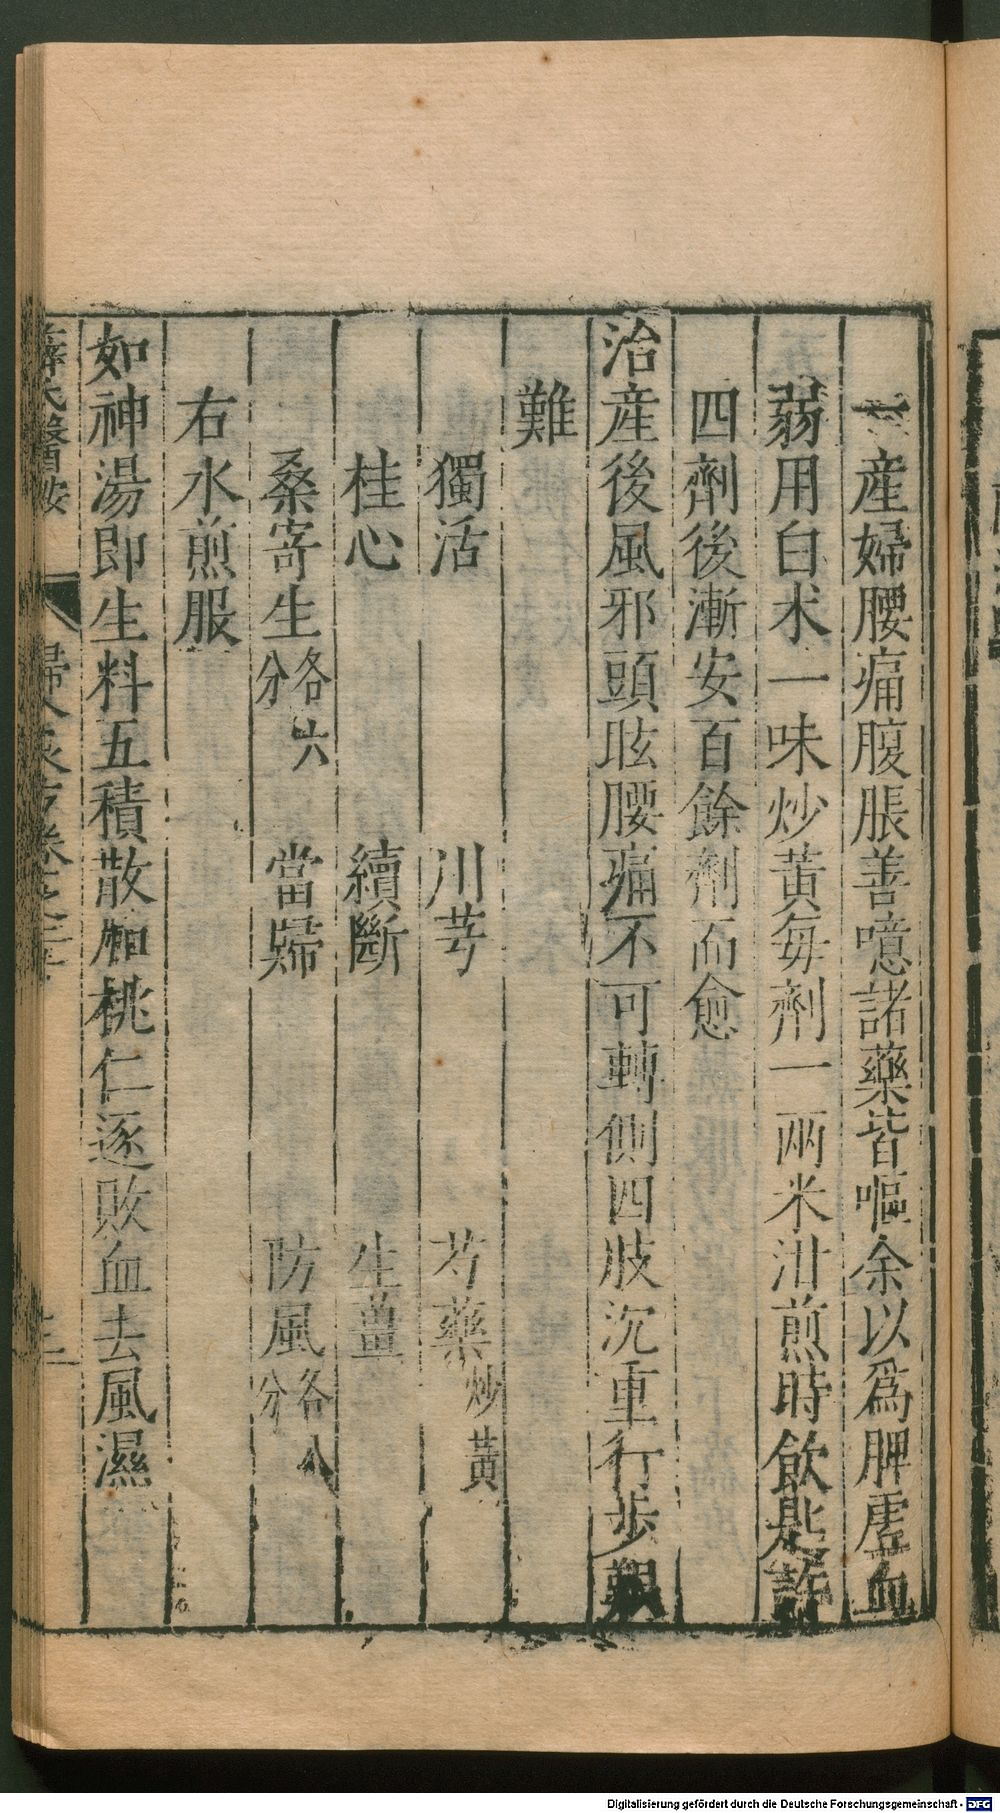 一產婦腰痛腹脹善噫諸藥皆嘔余以爲脾虛血
弱用白术一味炒黃每劑一兩米泔煎時飲匙許
四劑後漸安百餘劑而愈
治產後風邪頭眩腰痛不可轉側四肢沉重行步艱
難
獨活 川芎 芍藥炒黃
桂心 續斷 生薑
桑寄生各六分 當歸 防風各八分
右水煎服
如神湯即生料五積散加桃仁逐敗血去風濕
薛氏醫按 婦人良方卷之二十
Digitalisierung gefördert durch die Deutsche Forschungsgemeinschaft - DFG